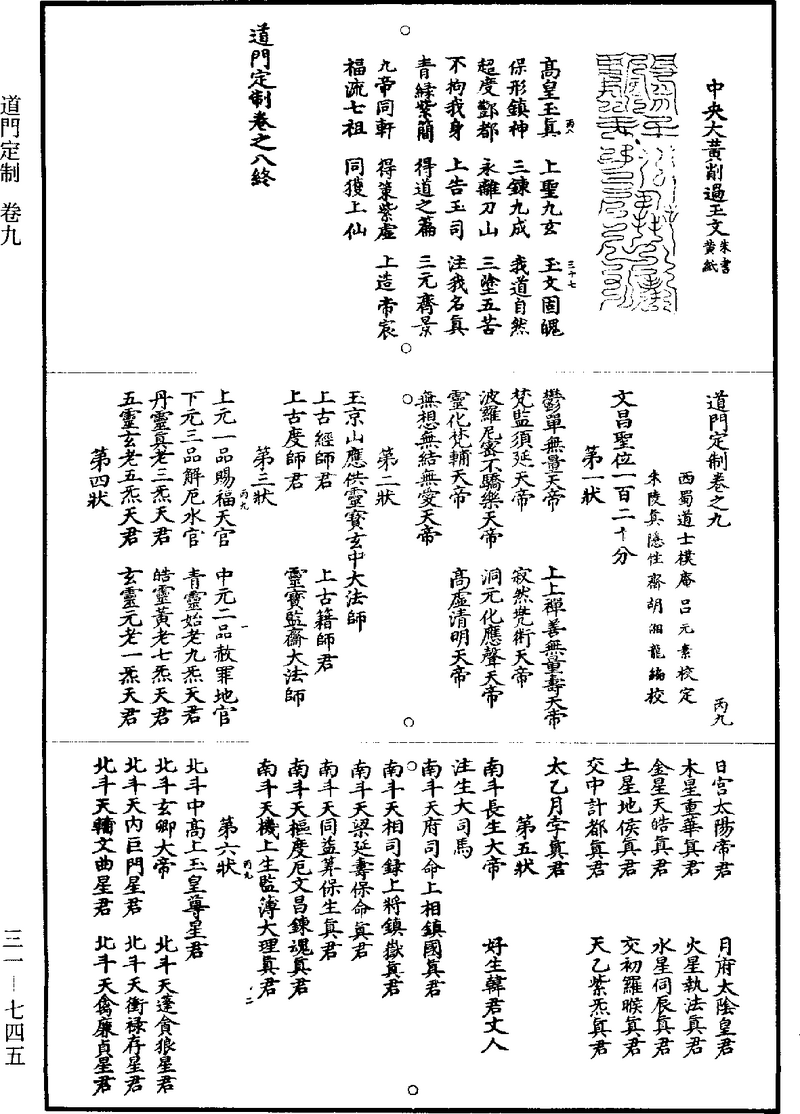 中央大黃削過玉文朱書黃紙
高皇玉真 上聖九玄 玉文固魄
丙八 三十七
保形鎮神 三鍊九成 我道自然
超度酆都 永離刀山 三塗五苦
不拘我身 上告玉司 注我名真
青綠紫簡 得道之篇 三元齊景
九帝同軒 得策紫虛 上造帝宸
福流七祖 同獲上仙
道門定制卷之八終
道門定制卷之九 丙九
西蜀道士樸庵呂元素校定
朱陵真隱性齋胡湘龍編校
文昌聖位一百二十分
第一狀
鬱單無量天帝 上上禪善無量壽天帝
梵監須延天帝 寂然兠術天帝
波羅尼密不驕樂天帝 洞元化應聲天帝
靈化梵輔天帝 高虛清明天帝
無想無結無愛天帝
第二狀
玉京山應供靈寶玄中大法師
上古經師君 上古籍師君
上古度師君 靈寶監齋大法師
第三狀
丙九 一
上元一品賜福天官 中元二品赦罪地官
下元三品解厄水官 青靈始老九炁天君
丹靈真老三炁天君 皓靈黃老七炁天君
五靈玄老五炁天君 玄靈元老一炁天君
第四狀
日宮太陽帝君 月府太陰皇君
木星重華真君 火星執法真君
金星天皓真君 水星伺辰真君
土星地侯真君 交初羅睺真君
交中計都真君 天乙紫炁真君
太乙月孛真君
第五狀
南斗長生大帝 好生韓君丈人
注生大司馬
南斗天府司命上相鎮國真君
南斗天相司錄上將鎮嶽真君
南斗天梁延壽保命真君
南斗天同益筭保生真君
南斗天樞度厄文昌鍊魂真君
南斗天機上生監簿大理真君
第六狀
丙九 二
北斗中高上玉皇尊星君
北斗玄卿大帝 北斗天蓬貪狼星君
北斗天內巨門星君 北斗天衝祿存星君
北斗天輔文曲星君 北斗天禽廉貞星君
道門定制 卷九
三一—七四五